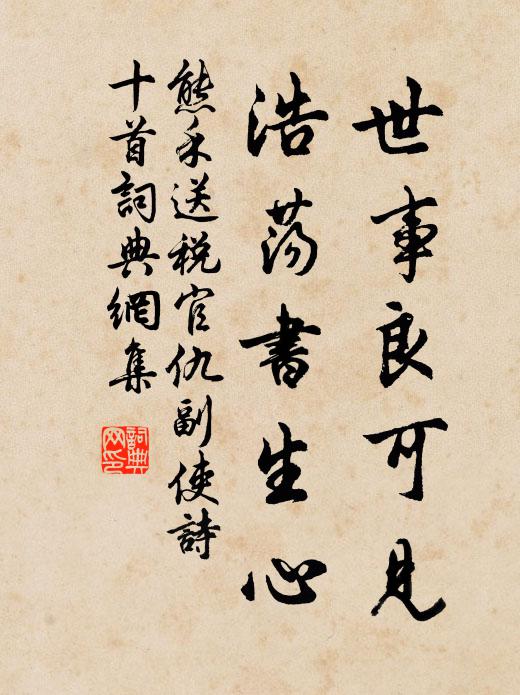 世事良可見
浩荡書生心
熊禾送税官仇副使詩
十首詞典網集
詞典
网印